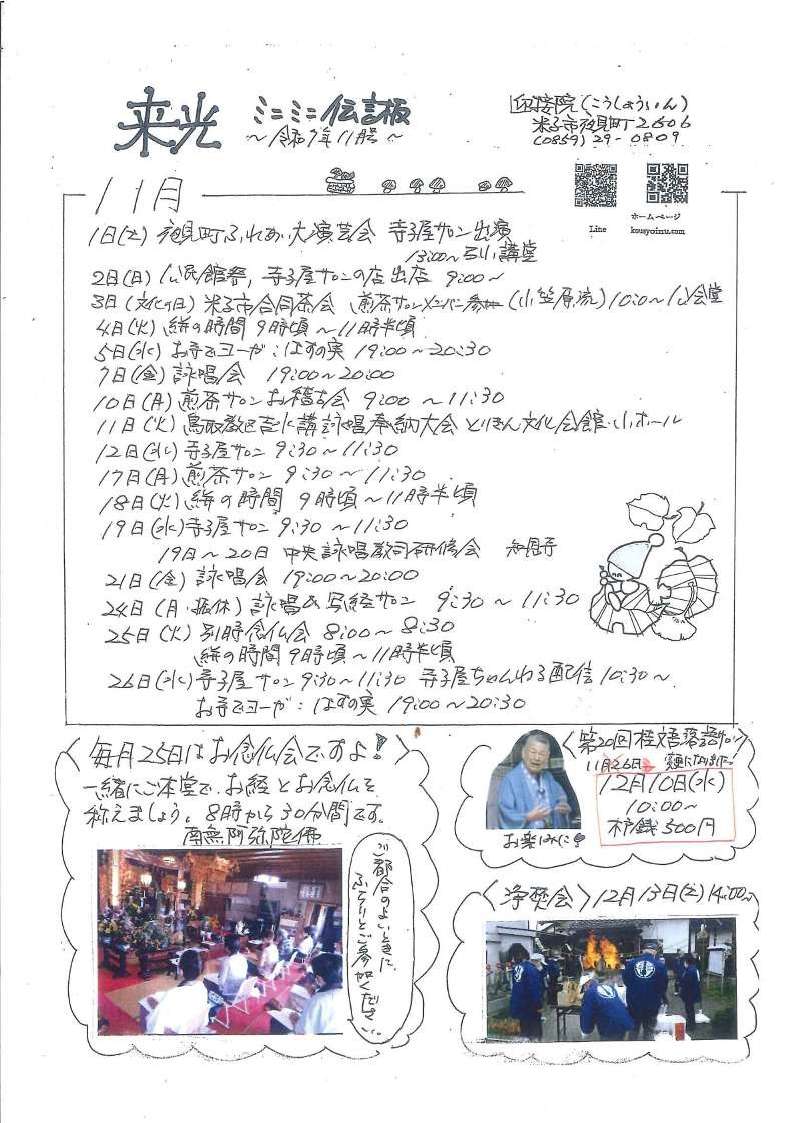 来光 ミニミニ伝言板
～令和7年11月号～
迎接院(こうしょういん)
米子市夜見町2506
(0859)29-0809
Line
ホームページ
kousyoinu.com
11月
1日(土) 夜見町ふれあい大演芸会 寺子屋サロン出演
13:00～ 講堂
2日(日) 公民館祭, 寺子屋サロンの店出店 9:00～
3日(文化の日) 米子市合同茶会 煎茶サロンメンバー参加(小笠原流) 10:00～ 公会堂
4日(火) 絣の時間 9時頃～11時半頃
5日(水) お寺でヨーガ:はすの実 19:00～20:30
7日(金) 詠唱会 19:00～20:00
10日(月) 煎茶サロンお稽古会 9:00～11:30
11日(火) 鳥取教区吉水講詠唱奉納大会 とりぎん文化会館・小ホール
12日(水) 寺子屋サロン 9:30～11:30
17日(月) 煎茶サロン 9:30～11:30
18日(火) 絣の時間 9時頃～11時半頃
19日(水) 寺子屋サロン 9:30～11:30
19日～20日 中央詠唱教司研修会 知恩寺
21日(金) 詠唱会 19:00～20:00
24日(月・振休) 詠唱&写経サロン 9:30～11:30
25日(火) 別時念仏会 8:00～8:30
絣の時間 9時頃～11時半頃
26日(水) 寺子屋サロン 9:30～11:30 寺子屋ちゃんねる配信 10:30～
お寺でヨーガ:はすの実 19:00～20:30
〈毎月25日はお念仏会ですよ!〉
一緒にご本堂で、お経とお念仏を
称えましょう。8時から30分間です。
南無阿弥陀佛
ご都合のよいときに、
ふらりとご参加ください。
〈第20回桂文吾落語サロン〉
11月26日 変更になりました
12月10日(水)
10:00～
木戸銭500円
お楽しみに!
〈浄焚会〉12月13日(土) 14:00～